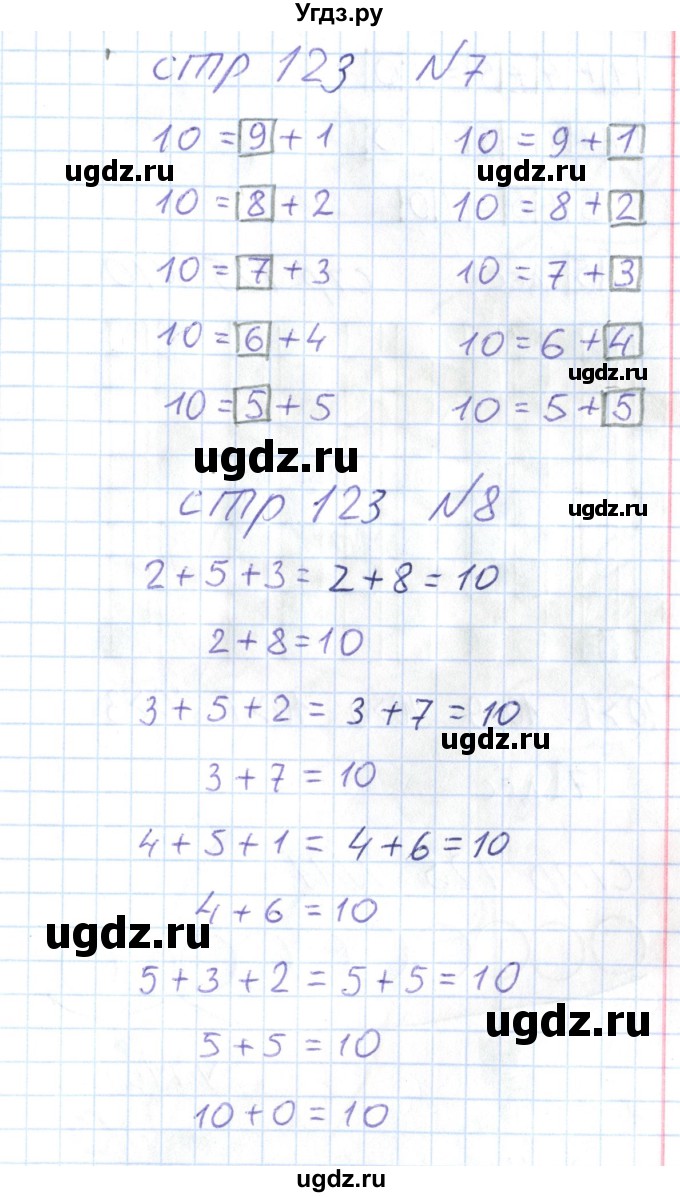 Угдз.ру
стр 123 №7
10 = 9 + 1 10 = 9 + 1
ugdz.ru ugdz.ru
10 = 8 + 2 10 = 8 + 2
10 = 7 + 3 10 = 7 + 3
10 = 6 + 4 10 = 6 + 4
ugdz.ru
10 = 5 + 5 10 = 5 + 5
ugdz.ru
стр 123 №8 ugdz.ru
2 + 5 + 3 = 2 + 8 = 10
2 + 8 = 10
3 + 5 + 2 = 3 + 7 = 10
ugdz.ru
3 + 7 = 10
4 + 5 + 1 = 4 + 6 = 10
4 + 6 = 10
ugdz.ru
5 + 3 + 2 = 5 + 5 = 10
ugdz.ru
5 + 5 = 10
10 + 0 = 10
ugdz.ru